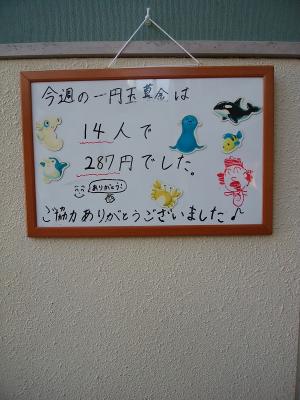 今週の一円玉募金は
14人で
287円でした。
ありがとう!
ご協力ありがとうございました♪